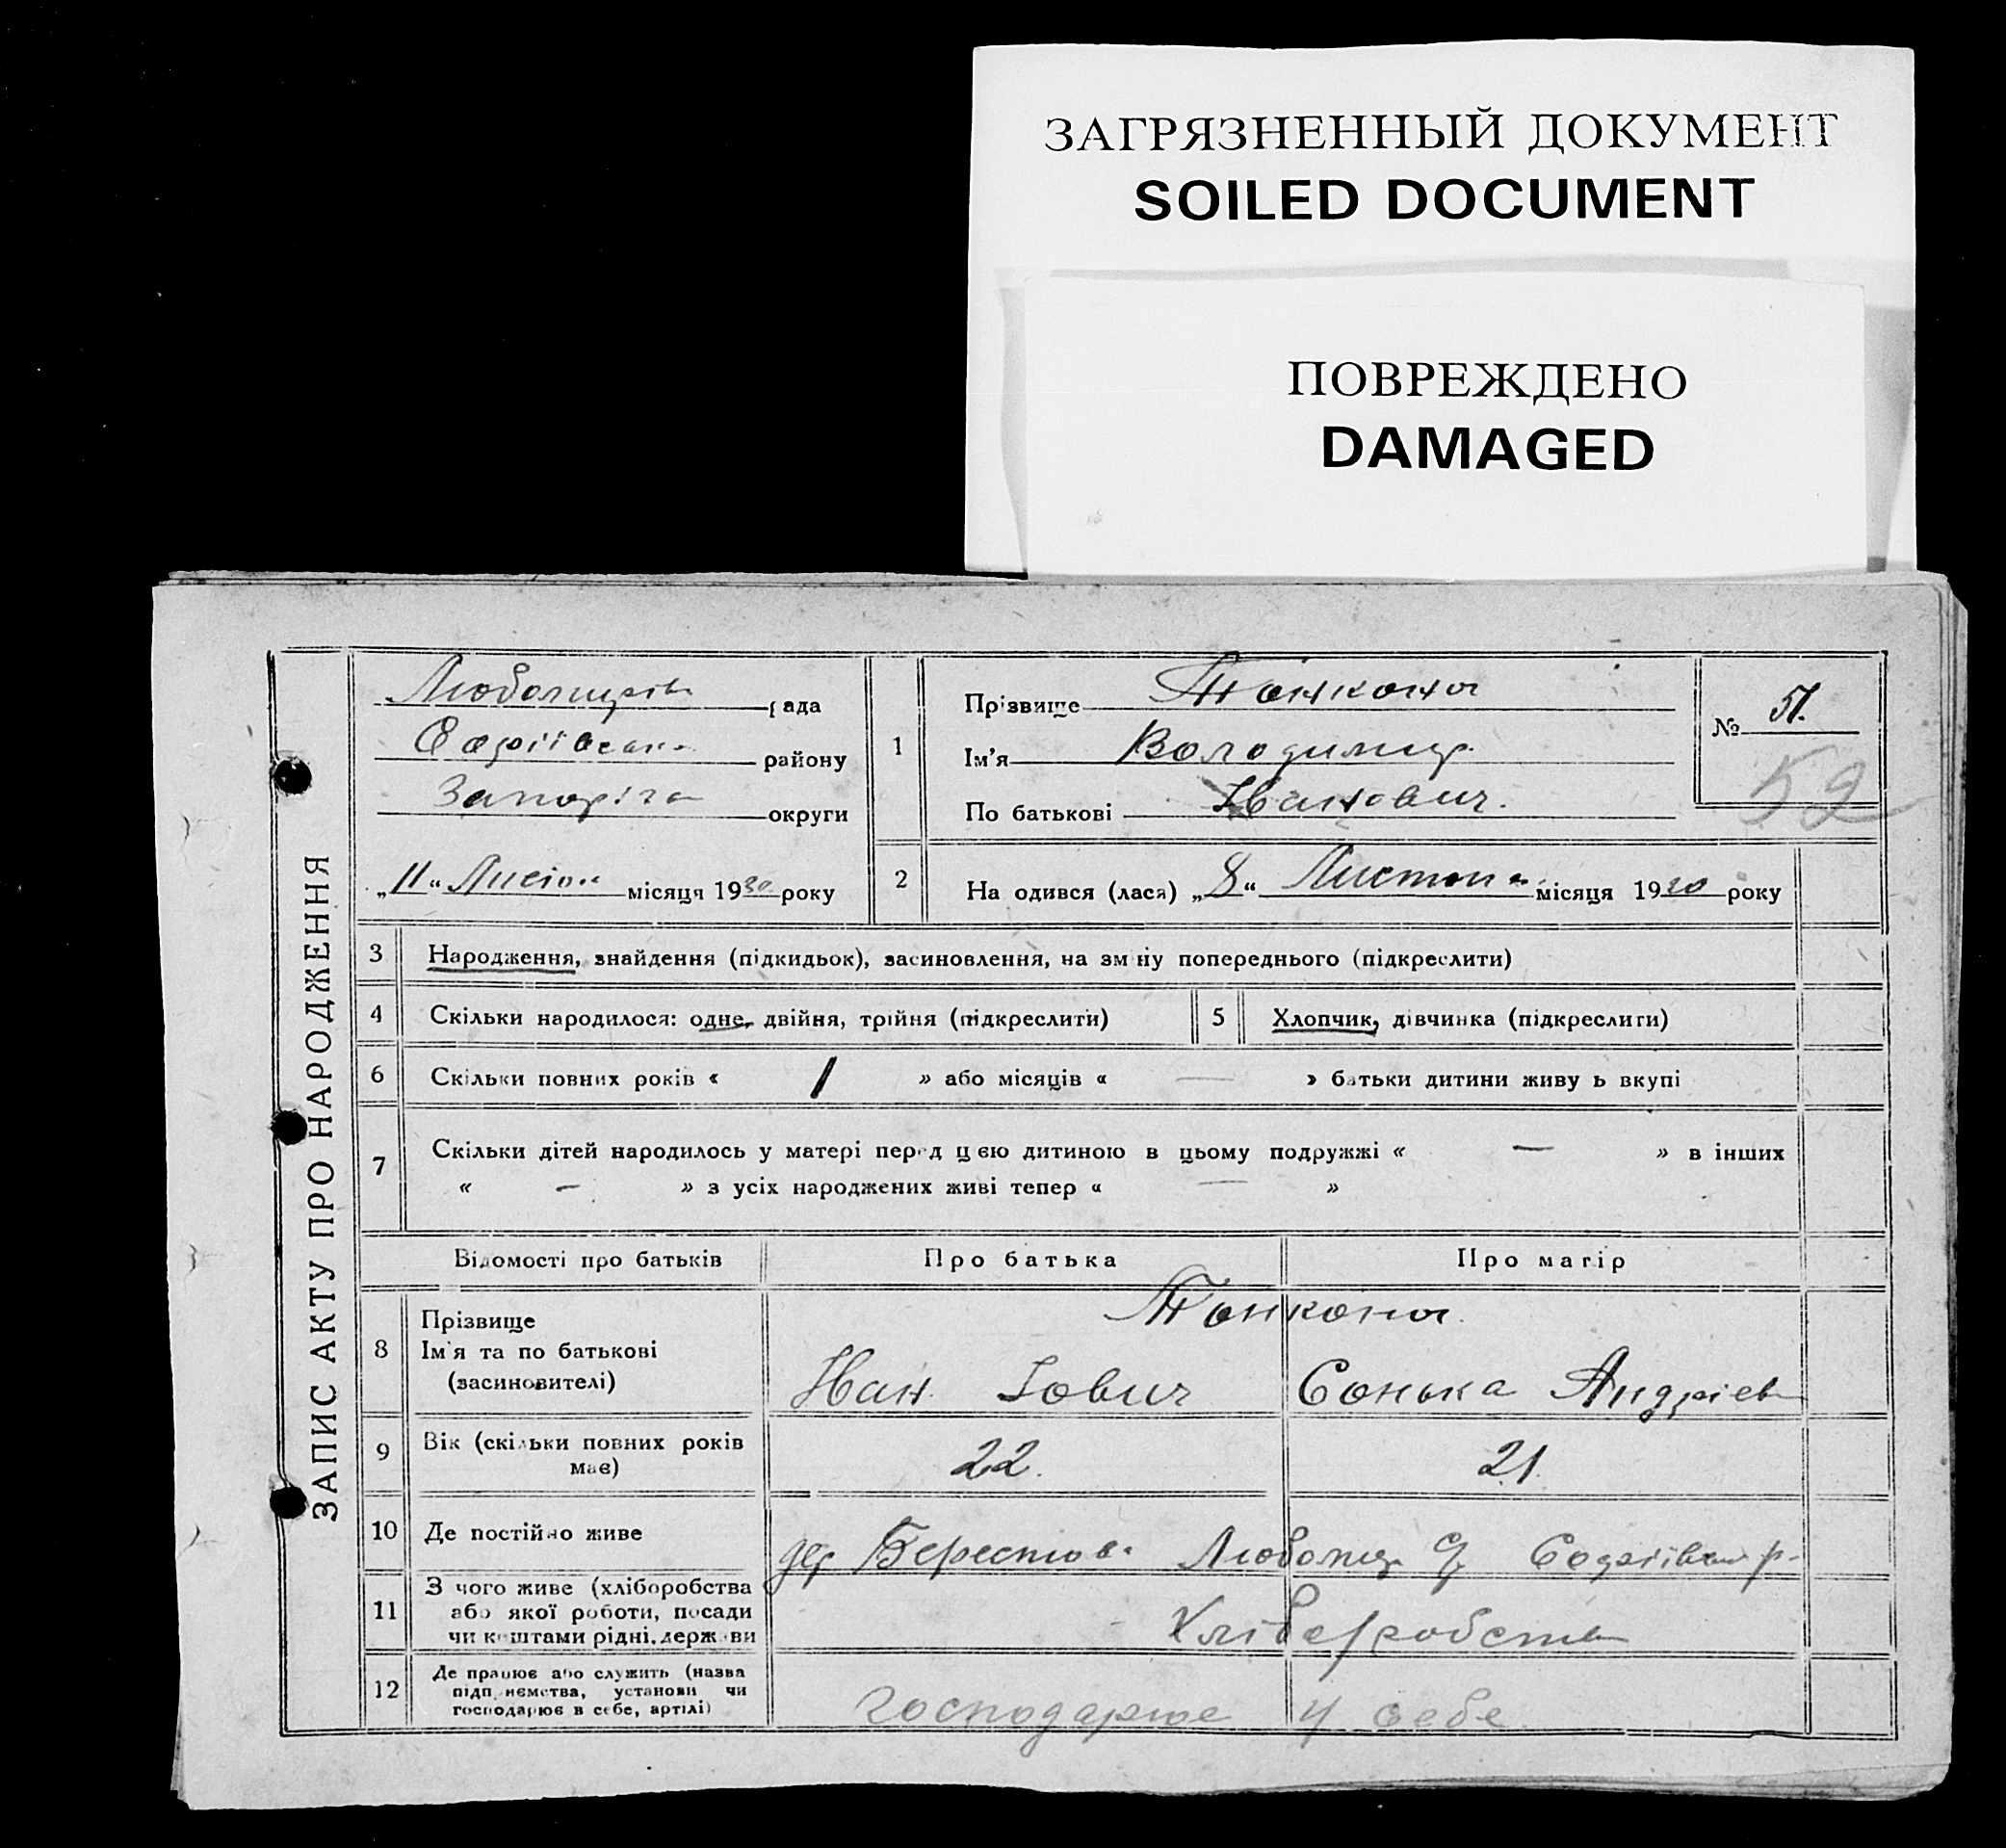 ЗАГРЯЗНЕННЫЙ ДОКУМЕНТ
SOILED DOCUMENT
ПОВРЕЖДЕНО
DAMAGED
ЗАПИС АКТУ ПРО НАРОДЖЕННЯ
рада
району
округи
„11“ місяця 1930 року
1
Прізвище
Ім'я Володимир
По батькові Іванович.
№ 51.
52
2
На одився (лася) „8“ місяця 1930 року
3 Народження, знайдення (підкидьок), засиновлення, на зм ну попереднього (підкреслити)
4 Скільки народилося: одне, двійня, трійня (підкреслити)
5 Хлопчик, дівчинка (підкреслити)
6 Скільки повних років « 1 » або місяців « — » батьки дитини живу ь вкупі
7 Скільки дітей народилось у матері перед цією дитиною в цьому подружжі « — » в інших
« — » з усіх народжених живі тепер « — »
Відомості про батьків Про батька Про матір
8 Прізвище
Ім'я та по батькові
(засиновителі)
Іван Іович Сонька Андріев
9 Вік (скільки повних років має) 22. 21.
10 Де постійно живе
дер
11 З чого живе (хліборобства або якої роботи, посади чи коштами рідні, держави
Хліборобств
12 Де працює або служить (назва підприємства, установи чи господарює в себе, артілі)
господарює у себе